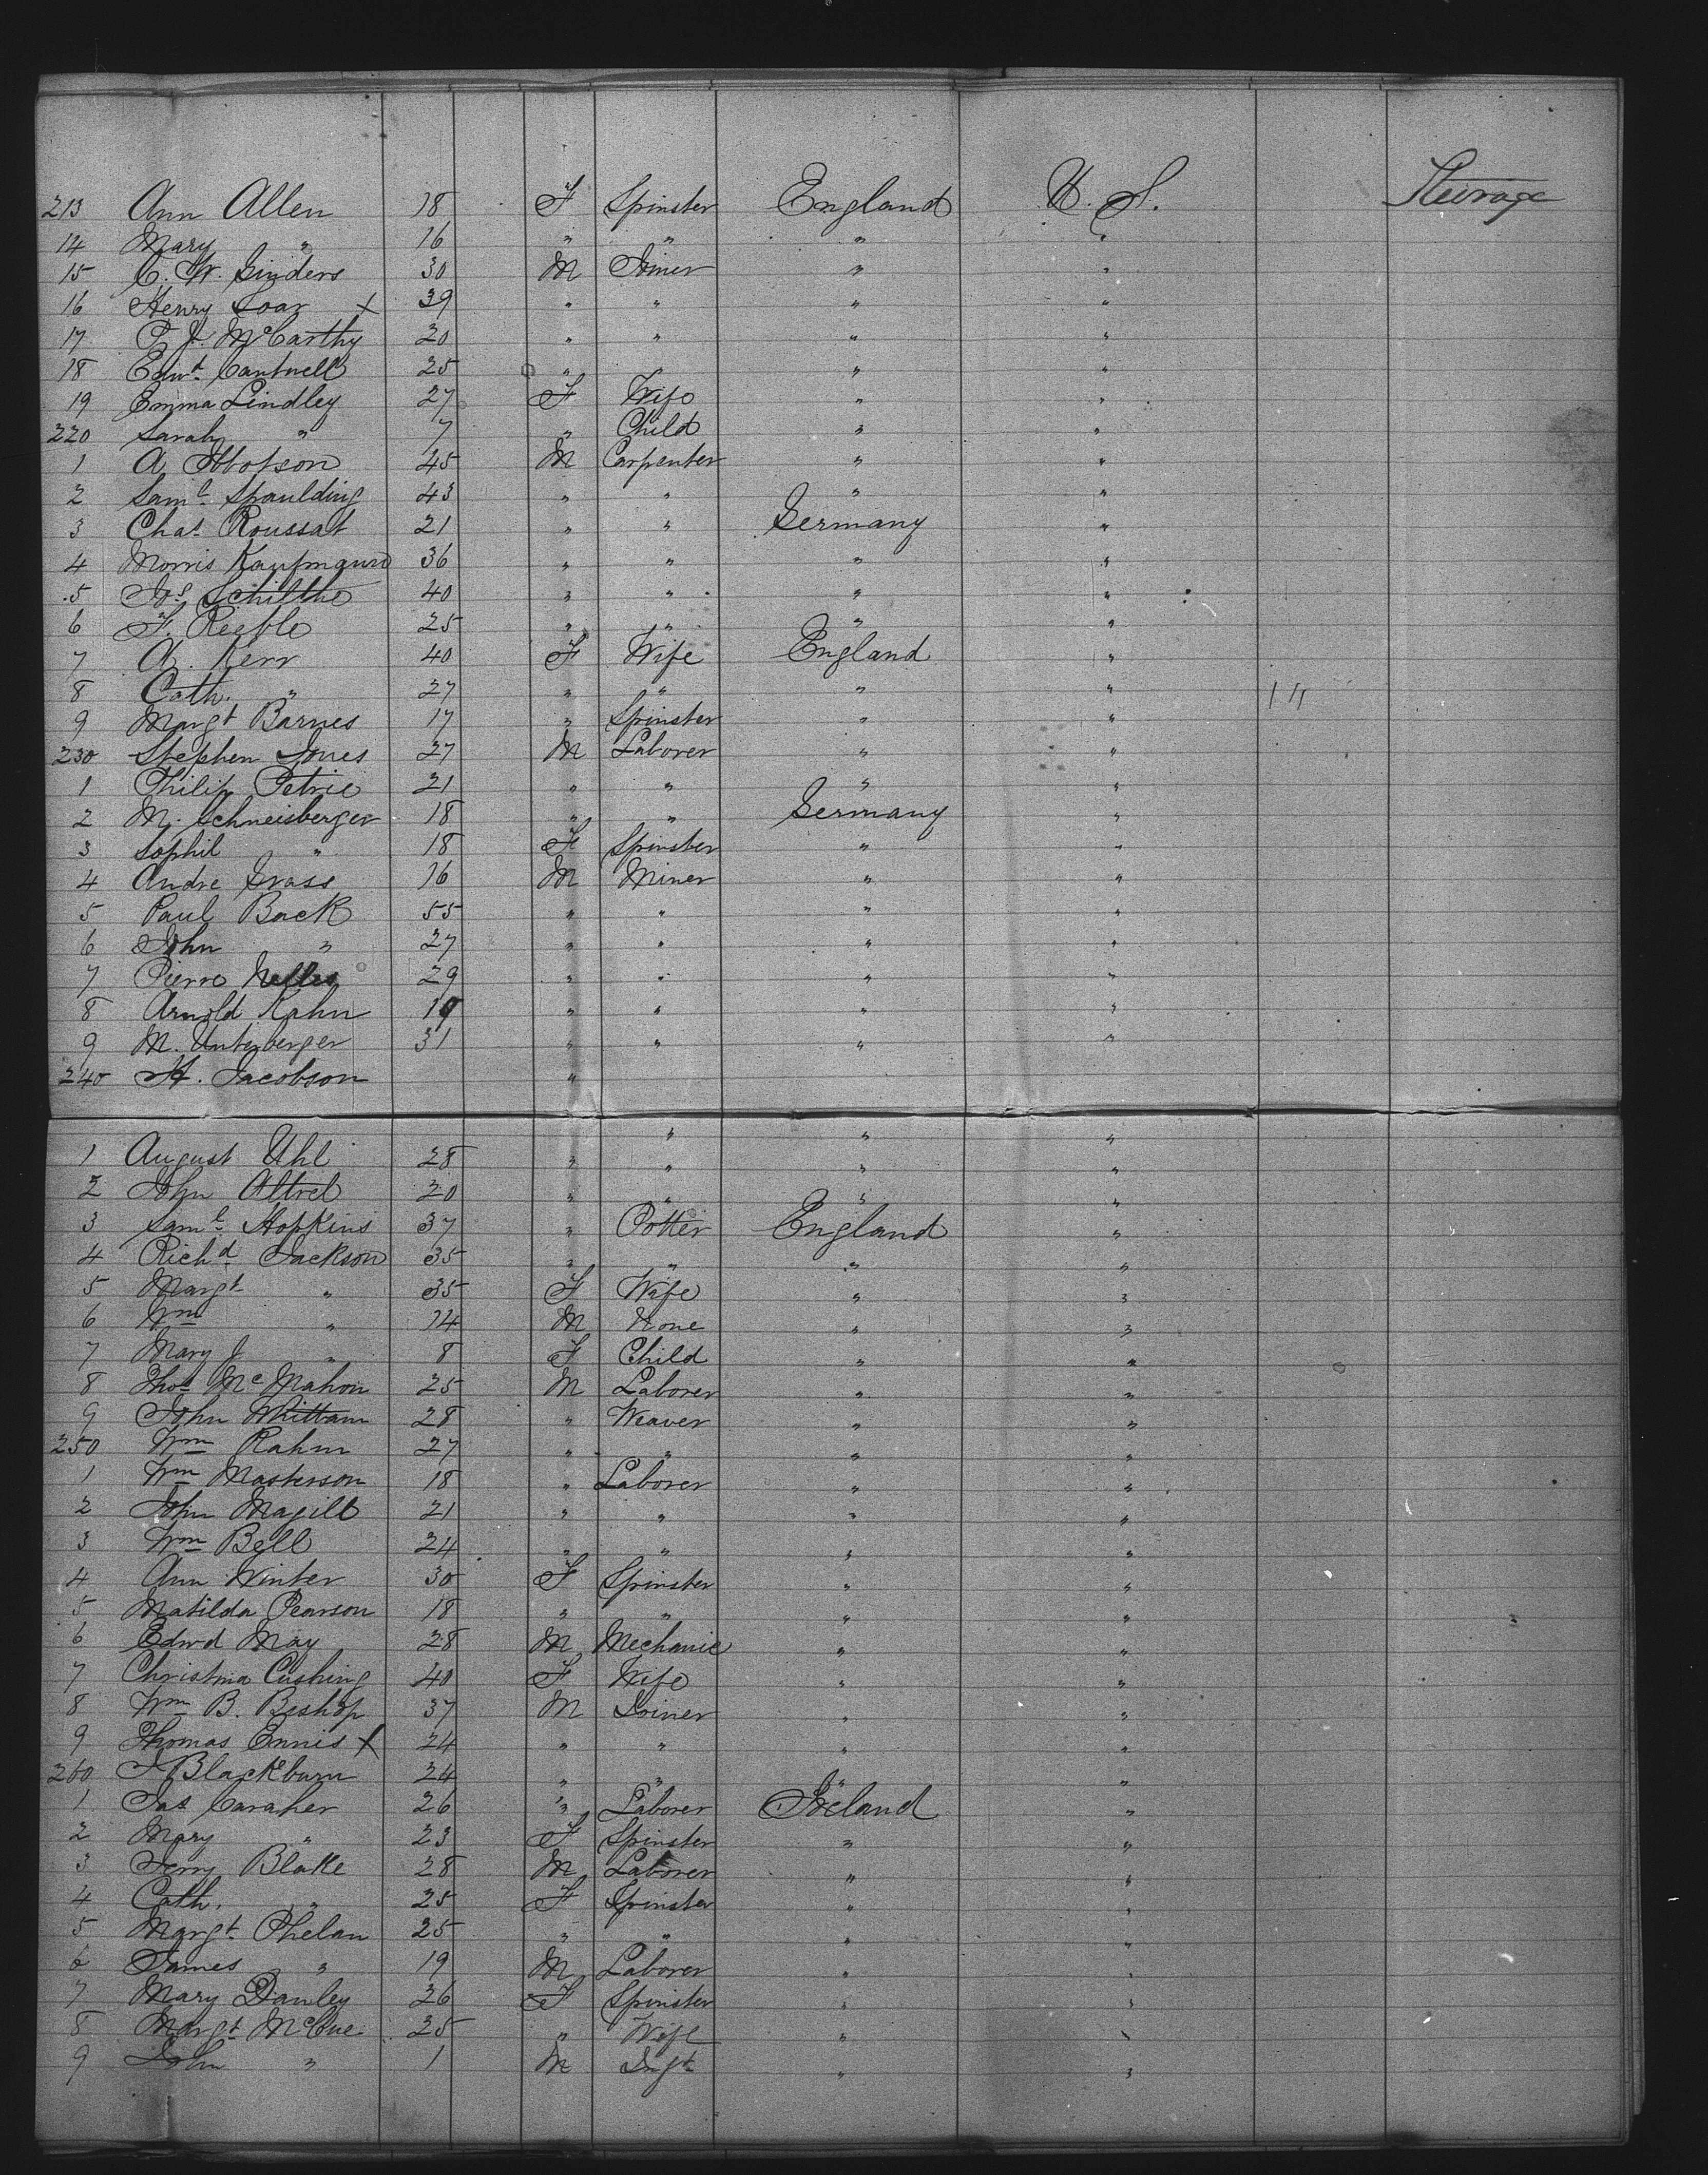 213 Ann Allen 18 F Spinster England U. S. Steerage
14 Mary " 16 " " " "
15 C. W. Ginders 30 M Joiner " "
16 Henry Soar X 39 " " " "
17 P. J. McCarthy 20 " " " "
18 Edwd. Cantwell 25 " " "
19 Emma Lindley 27 F Wife " "
220 Sarah " 7 " Child " "
1 A Ibbotson 45 M Carpenter " "
2 Saml. Spaulding 43 " " " "
3 Chas Roussat 21 " " Germany "
4 Morris Kaufmann 36 " " " "
5 Jos Schilthe 40 " " " "
6 F. 25 " " " "
7 A. Kerr 40 F Wife England "
8 Cath. " 27 " " " " 1 11
9 Margt Barnes 17 " Spinster " "
230 Stephen Jones 27 M Laborer " "
1 Philip Petrie 21 " " " "
2 M. Schneisberger 18 " " Germany "
3 Sophil " 18 F Spinster " "
4 Andre Grass 16 M Miner " "
5 Paul Back 55 " " " "
6 John " 27 " " " "
7 Pierre Nelles 29 " " " "
8 Arnold Kahn 19 " " " "
9 M. Unterberger 31 " " " "
240 H. Jacobson "
" " "
1 August Uhl 28 " " " "
2 John Altrel 20 " " " "
3 Saml. Hopkins 37 " Potter England "
4 Richd. Jackson 35 " " " "
5 Margt " 35 F Wife " "
6 Wm " 14 M None " "
7 Mary J " 8 F Child " "
8 Thos McMahon 25 M Laborer " "
9 John Whittam 28 " Weaver " "
250 Wm Rahm 27 " " " "
1 Wm Masterson 18 " Laborer " "
2 John Magill 21 " " " "
3 Wm Bell 24 " " " "
4 Ann Winter 30 F Spinster " "
5 Matilda Pearson 18 " " " "
6 Edwd May 28 M Mechanic " "
7 Christina Cushing 40 F Wife " "
8 Wm B. Bishop 37 M Joiner " "
9 Thomas Ennis X 24 " " " "
260 Blackburn 24 " " " "
1 Jas Caraher 26 " Laborer Ireland "
2 Mary " 23 F Spinster " "
3 Jerry Blake 28 M Laborer " "
4 Cath. " 25 F Spinster " "
5 Margt. Phelan 25 " " " "
6 James " 19 M Laborer " "
7 Mary Danley 26 F Spinster " "
8 Margt McCue 25 " Wife " "
9 John " 1 M Inft " "